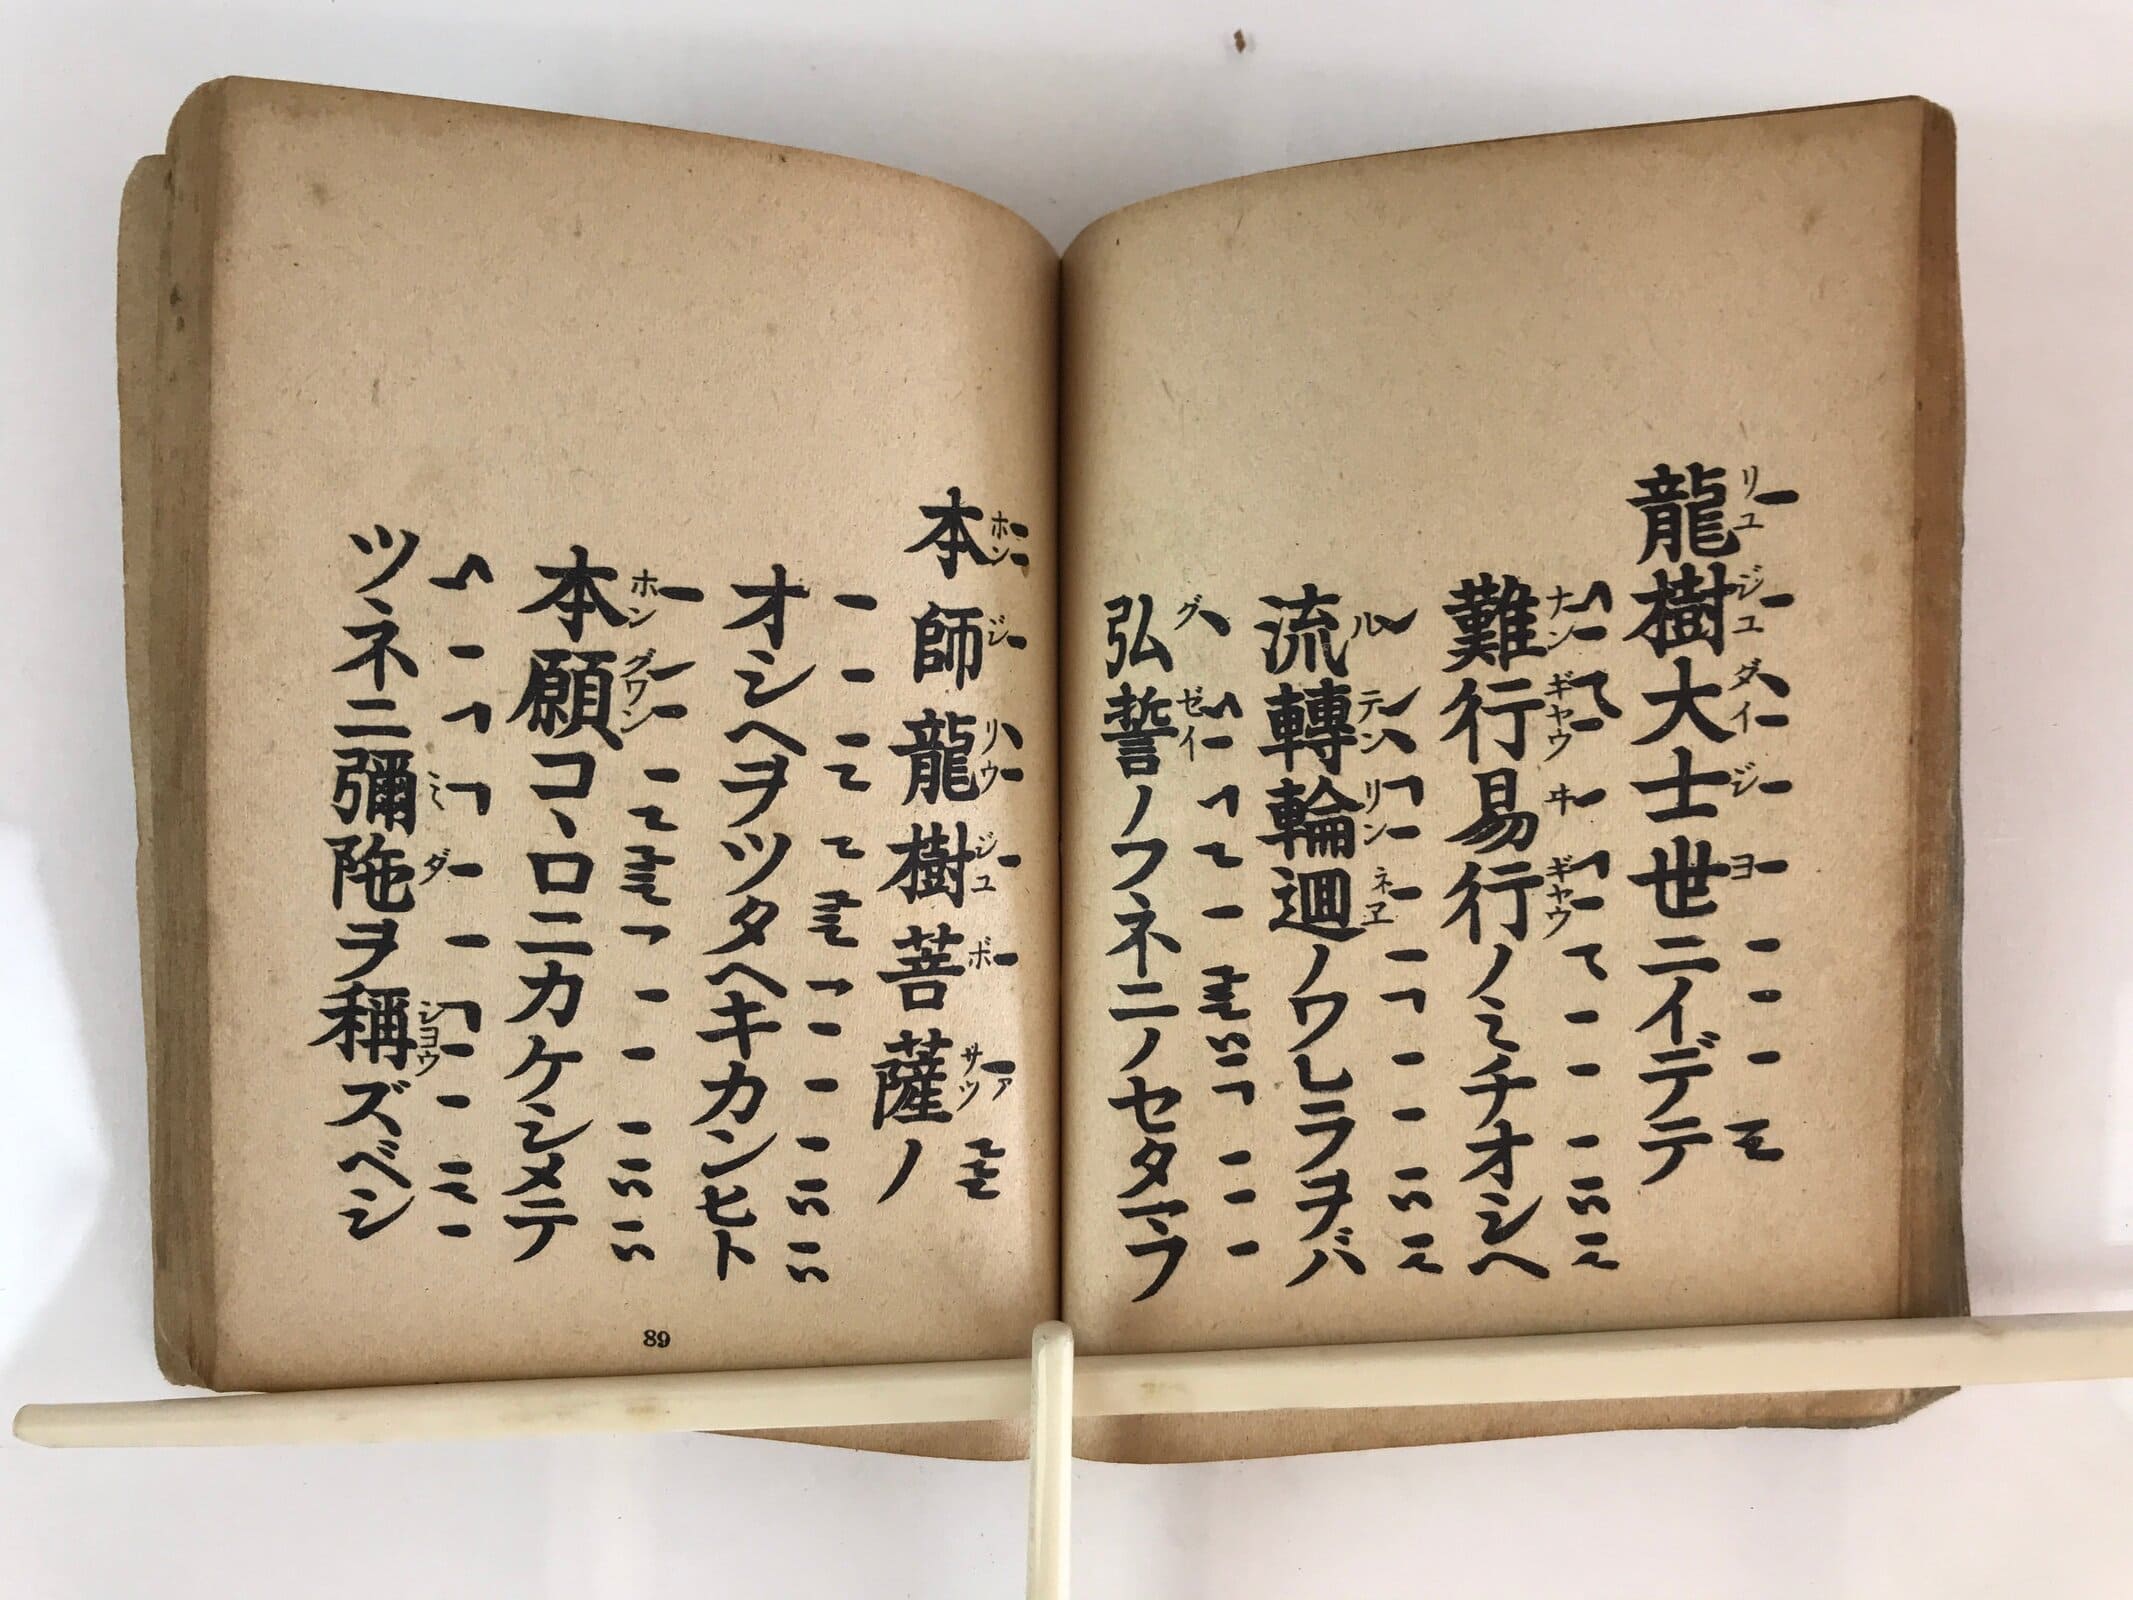 龍樹大士世ニイデテ
難行易行ノミチオシヘ
流轉輪廻ノワレラヲバ
弘誓ノフネニノセタマフ
本師龍樹菩薩ノ
オシヘヲツタヘキカンヒト
本願コヽロニカケシメテ
ツネニ彌陀ヲ稱ズベシ
89